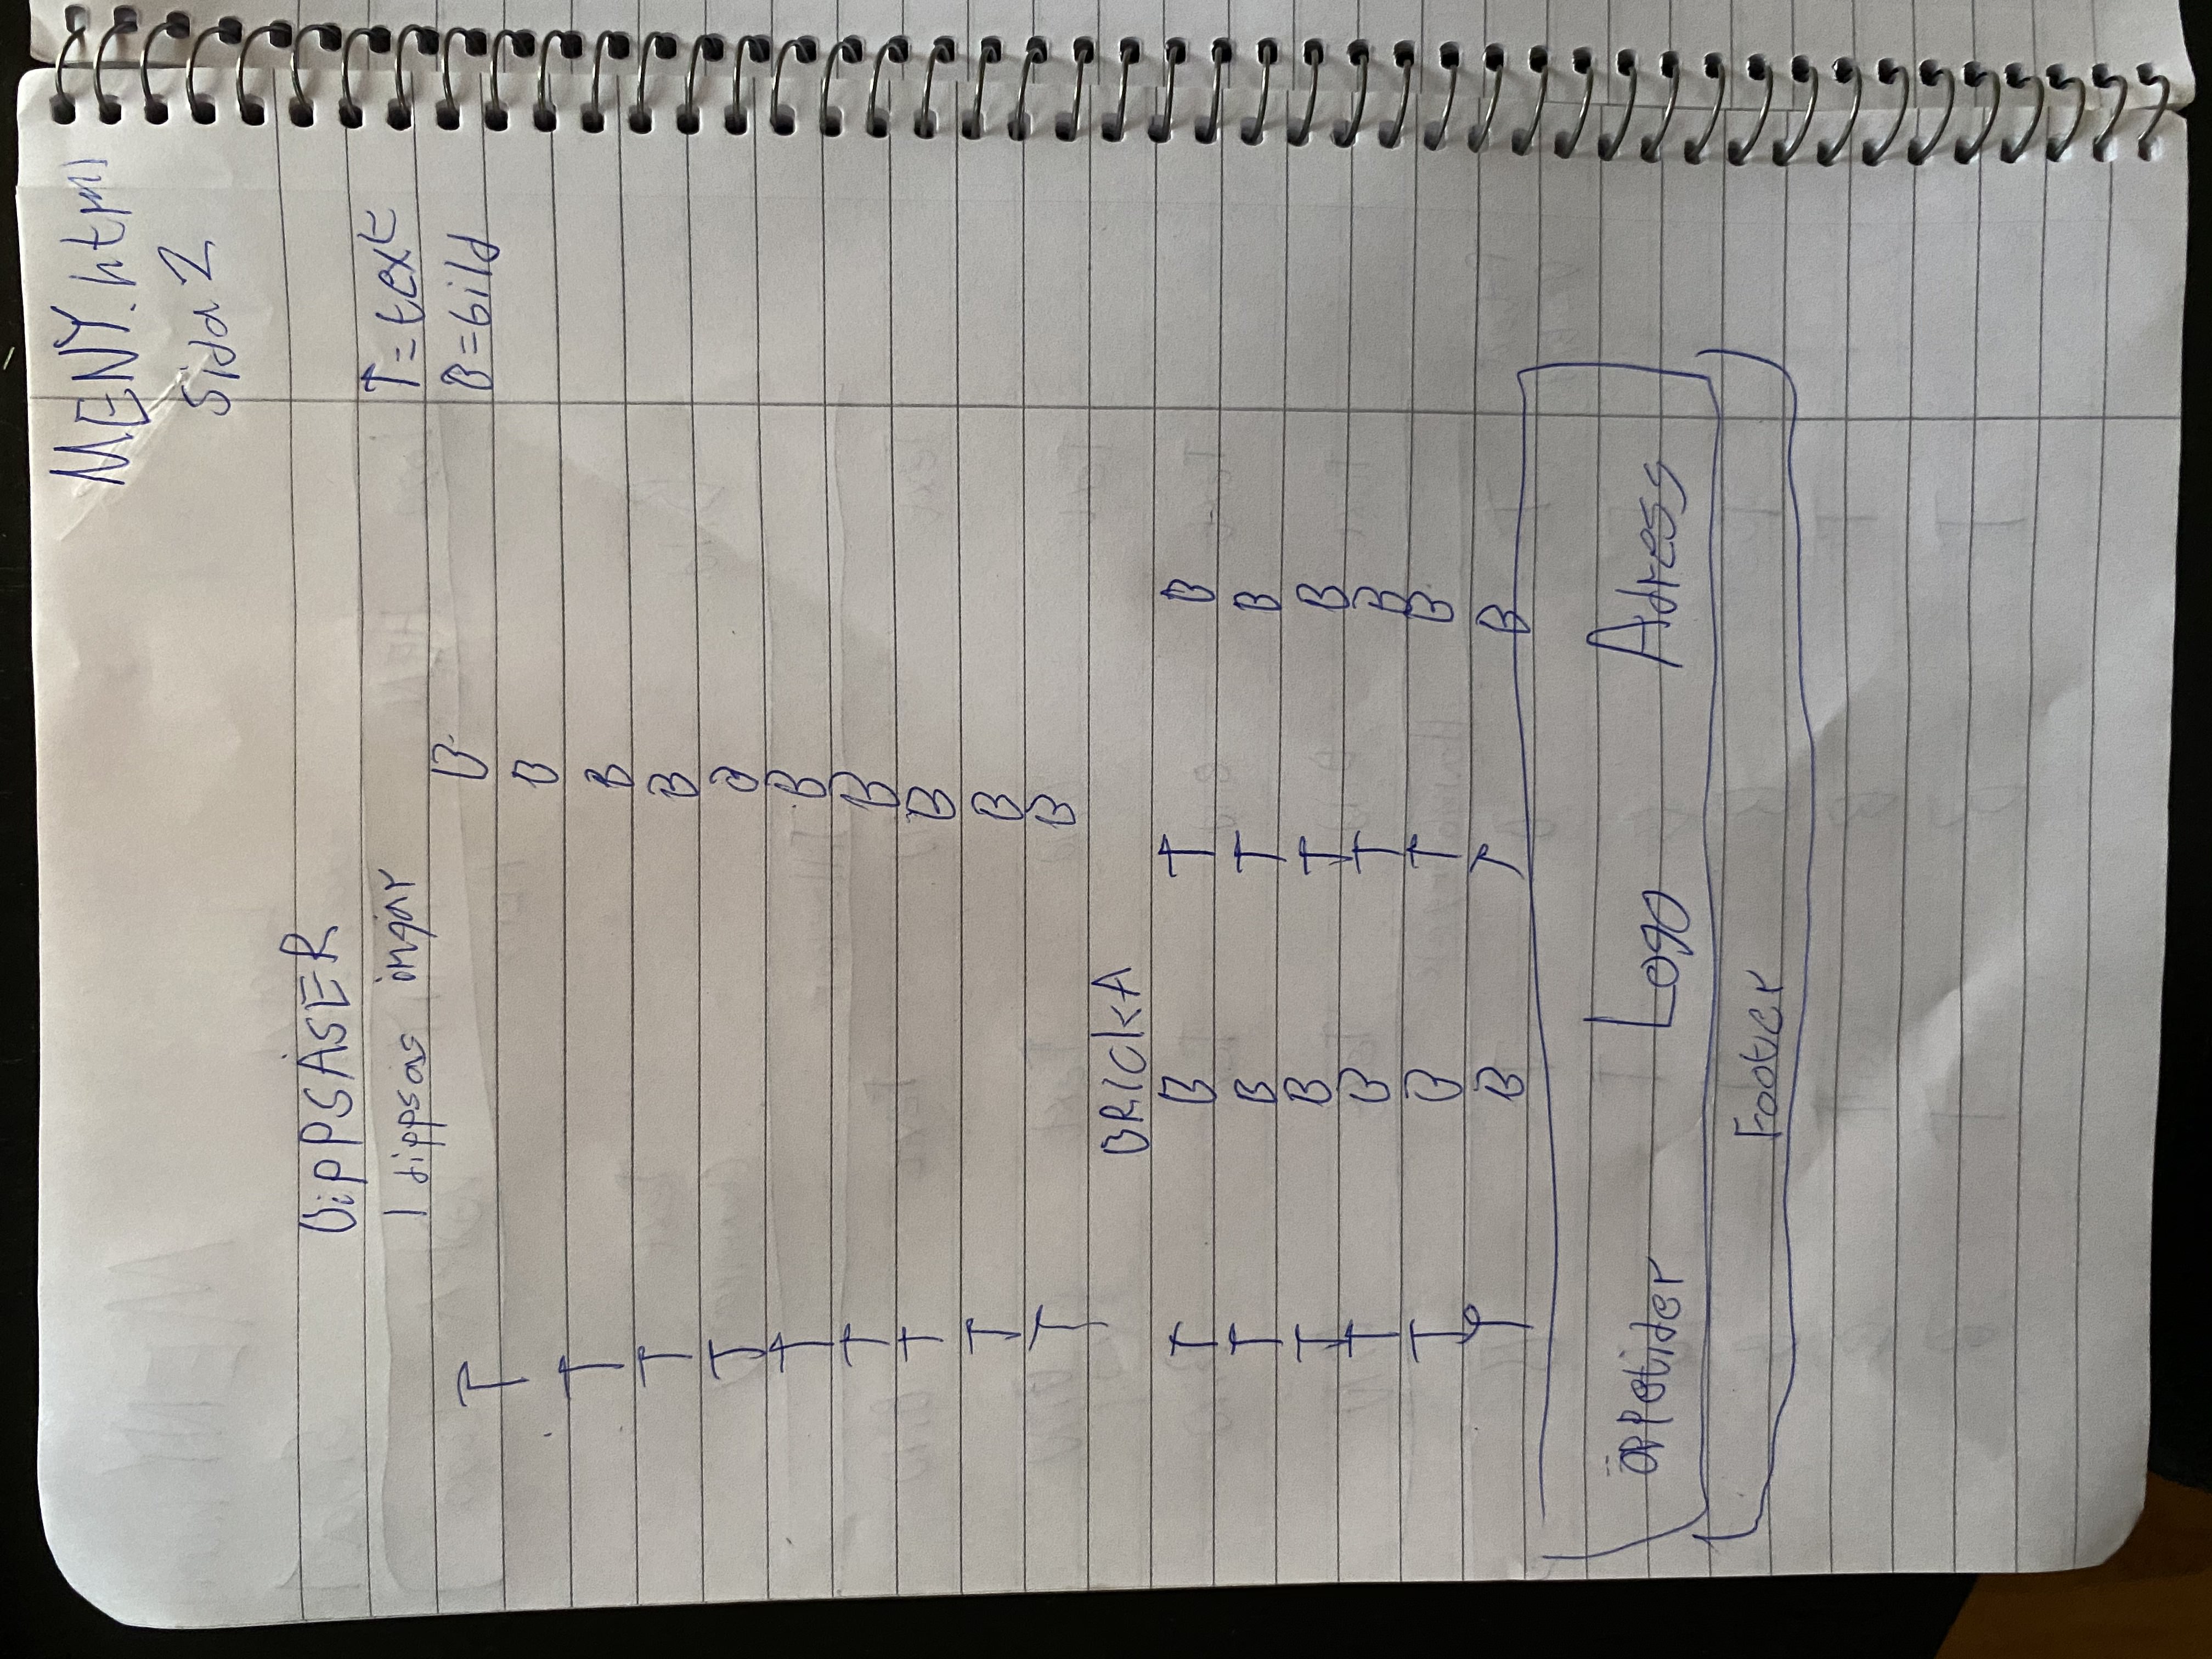 MENY.html
Sida 2
DiPPSÅSER
1 dippsås ingår
T = text
B = bild
T B
T B
T B
T B
T B
T B
T B
T B
T B
B
BRICKA
T B T B
T B T B
T B T B
T B T B
T B T B
T B T B
öppetider Logo Adress
Footer